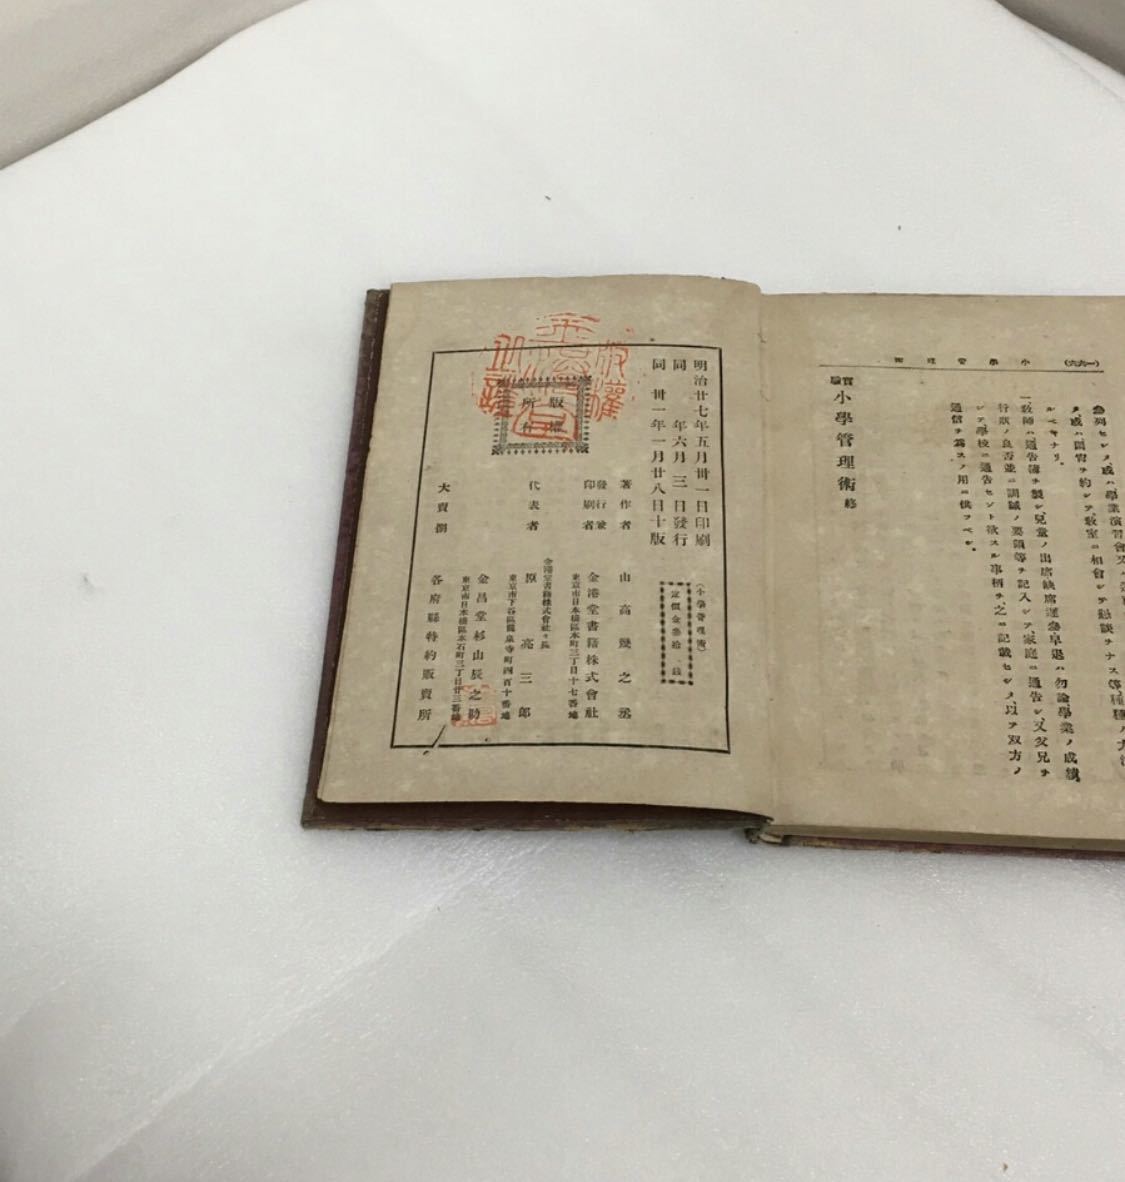 (一六六)
小學管理術
參列セシメ、或ハ學業演習會又ハ
タ、或ハ閑宵ヲ約シテ、敎室ニ相會シテ懇談ヲナス等、種種ノ方法
ルベキナリ。
一、敎師ハ通告簿ヲ製シ、兒童ノ出席缺席遲參早退ハ勿論、學業ノ成績、
行狀ノ良否並ニ訓誡ノ要領等ヲ記入シテ、家庭ニ通告シ、又父兄ヲ
シテ、學校ニ通告セント欲スル事柄ヲ、之ニ記載セシメ、以テ双方ノ
通信ヲ爲スノ用ニ供フベシ。
實驗 小學管理術 終
明治廿七年五月卅一日印刷
同 年六月三日發行
同 卅一年一月廿八日十版
(小學管理術)
定價金參拾 錢
版權所有
著作者 山高幾之丞
發行兼印刷者 金港堂書籍株式會社
東京市日本橋區本町三丁目十七番地
金港堂書籍株式會社々長
代表者 原亮三郎
東京市下谷區龍泉寺町四百十番地
大賣捌 金昌堂杉山辰之助
東京市日本橋區本石町三丁目廿三番地
各府縣特約販賣所